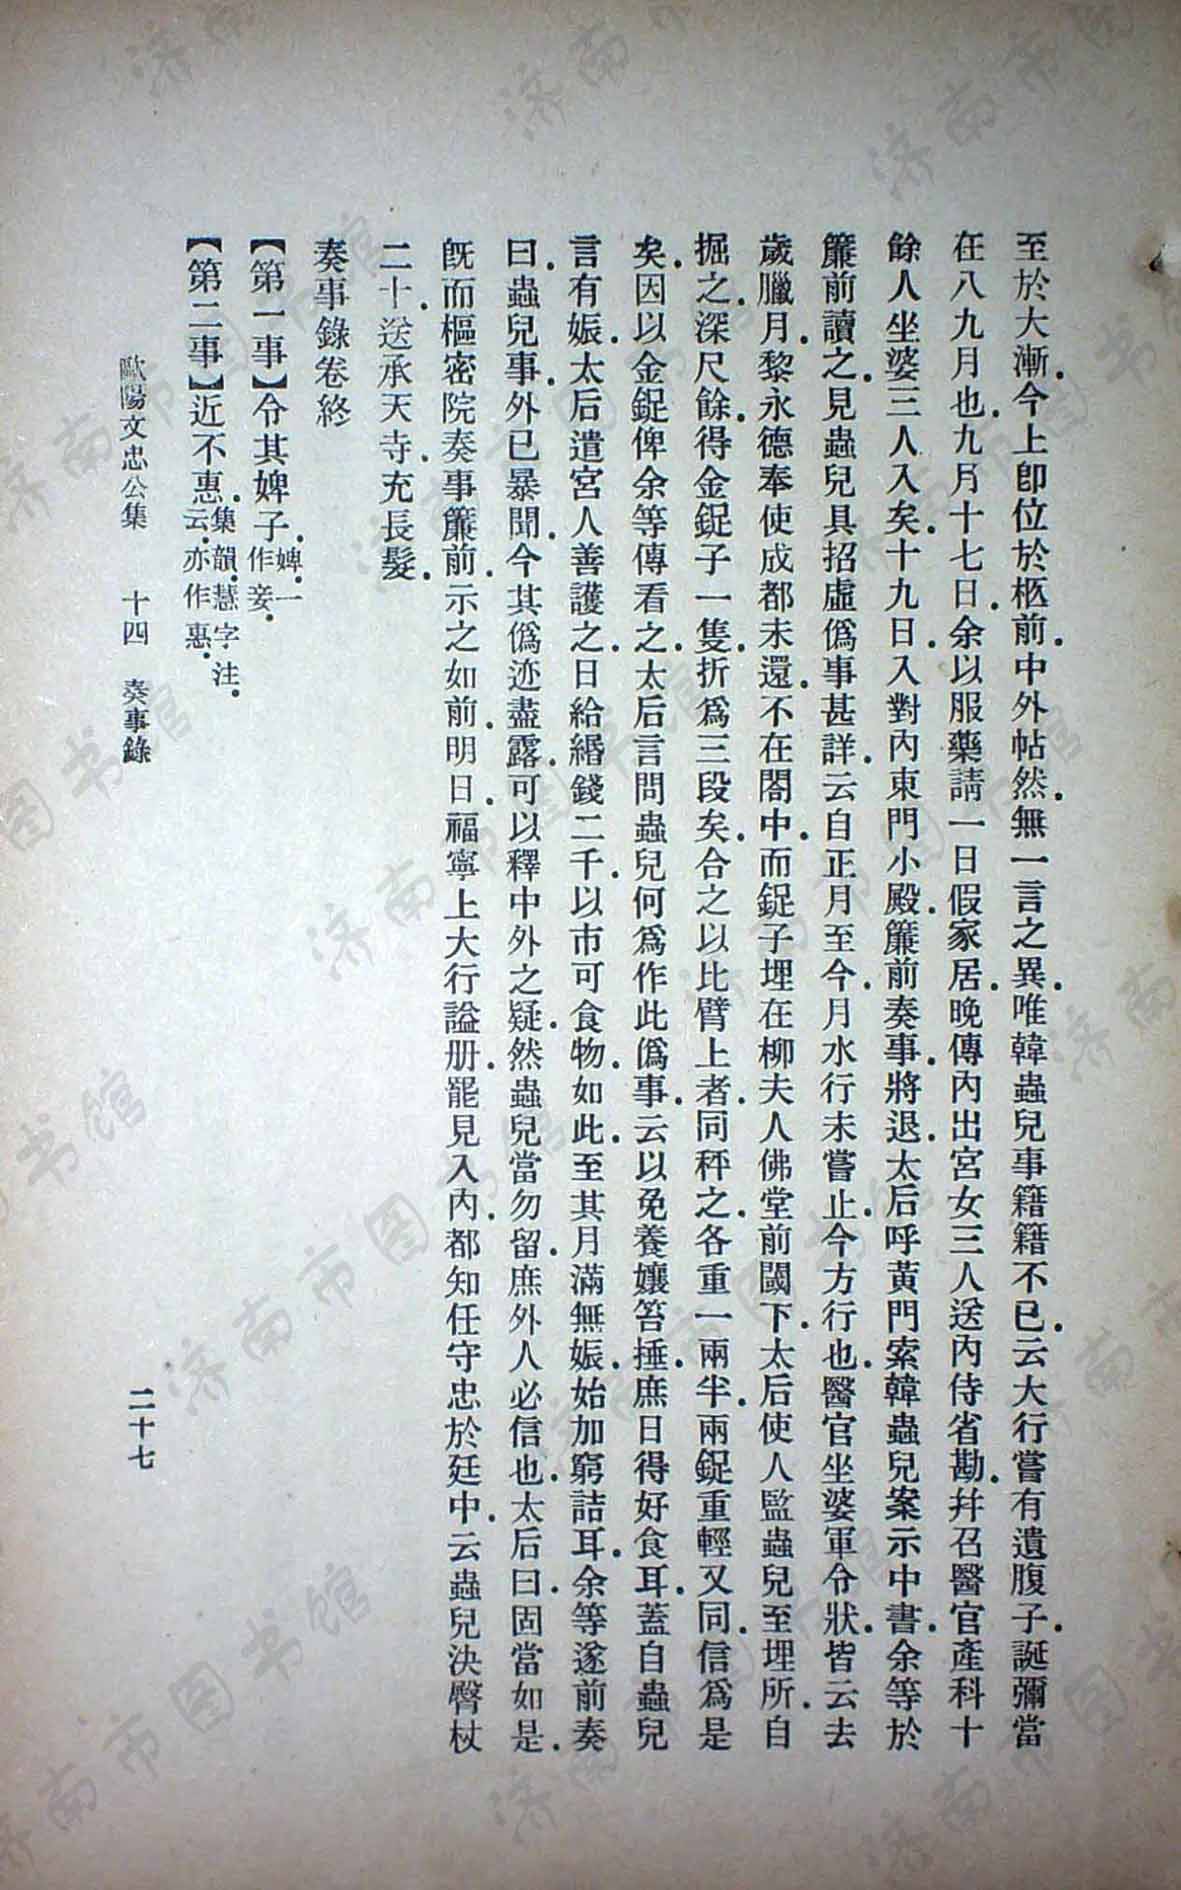 至於大漸.今上卽位於柩前.中外帖然.無一言之異.唯韓蟲兒事籍籍不已.云大行嘗有遺腹子.誕彌當
在八九月也.九月十七日.余以服藥請一日假家居.晚傳內出宮女三人送內侍省勘.幷召醫官產科十
餘人坐婆三人入矣.十九日.入對內東門小殿.簾前奏事.將退.太后呼黃門索韓蟲兒案示中書.余等於
簾前讀之.見蟲兒具招虛僞事甚詳.云自正月至今.月水行未嘗止.今方行也.醫官坐婆軍令狀.皆云去
歲臘月.黎永德奉使成都未還.不在閤中.而鋜子埋在柳夫人佛堂前閾下.太后使人監蟲兒至埋所.自
掘之.深尺餘.得金鋜子一隻.折爲三段矣.合之以比臂上者.同秤之.各重一兩半.兩鋜重輕又同.信爲是
矣.因以金鋜俾余等傳看之.太后言問蟲兒何爲作此僞事.云以免養孃笞捶.庶日得好食耳.蓋自蟲兒
言有娠.太后遣宮人善護之.日給緡錢二千.以市可食物.如此.至其月滿無娠.始加窮詰耳.余等遂前奏
曰.蟲兒事.外已暴聞.今其僞迹盡露.可以釋中外之疑.然蟲兒當勿留.庶外人必信也.太后曰.固當如是.
旣而樞密院奏事簾前.示之如前.明日.福寧上大行謚册.罷見入內.都知任守忠於廷中.云蟲兒決臀杖
二十.送承天寺.充長髮.
奏事錄卷終
【第一事】令其婢子.婢.一作妾.
【第二事】近不惠.集韻.慧字注.云.亦作惠.
歐陽文忠公集 十四 奏事錄 二十七
济南市图书馆